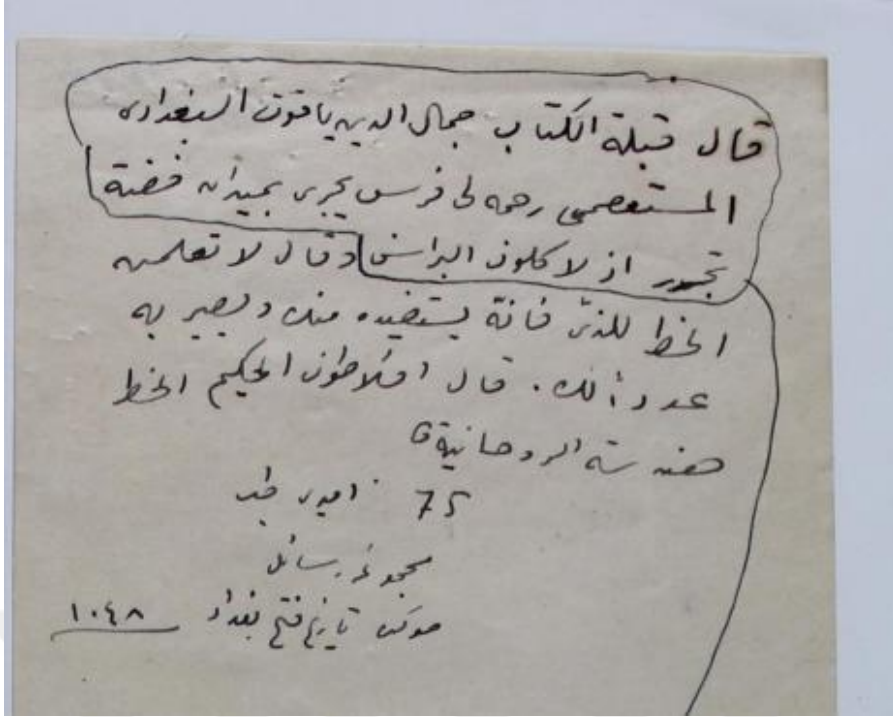 قال قبلة الكتاب جمال الدين ياقوت البغدادى
المستعصمى رحمه لى فرس يجرى بميدان فضة
اذ لا كلون وقال لا تعلمن
الخط للذى فانة يستفيده منك ويصير به
عدو ألك. قال افلاطون الحكيم الخط
هندسة الروحانية
75
مجموعه رسائل
تاريخ فتح بغداد ١٠٤٨